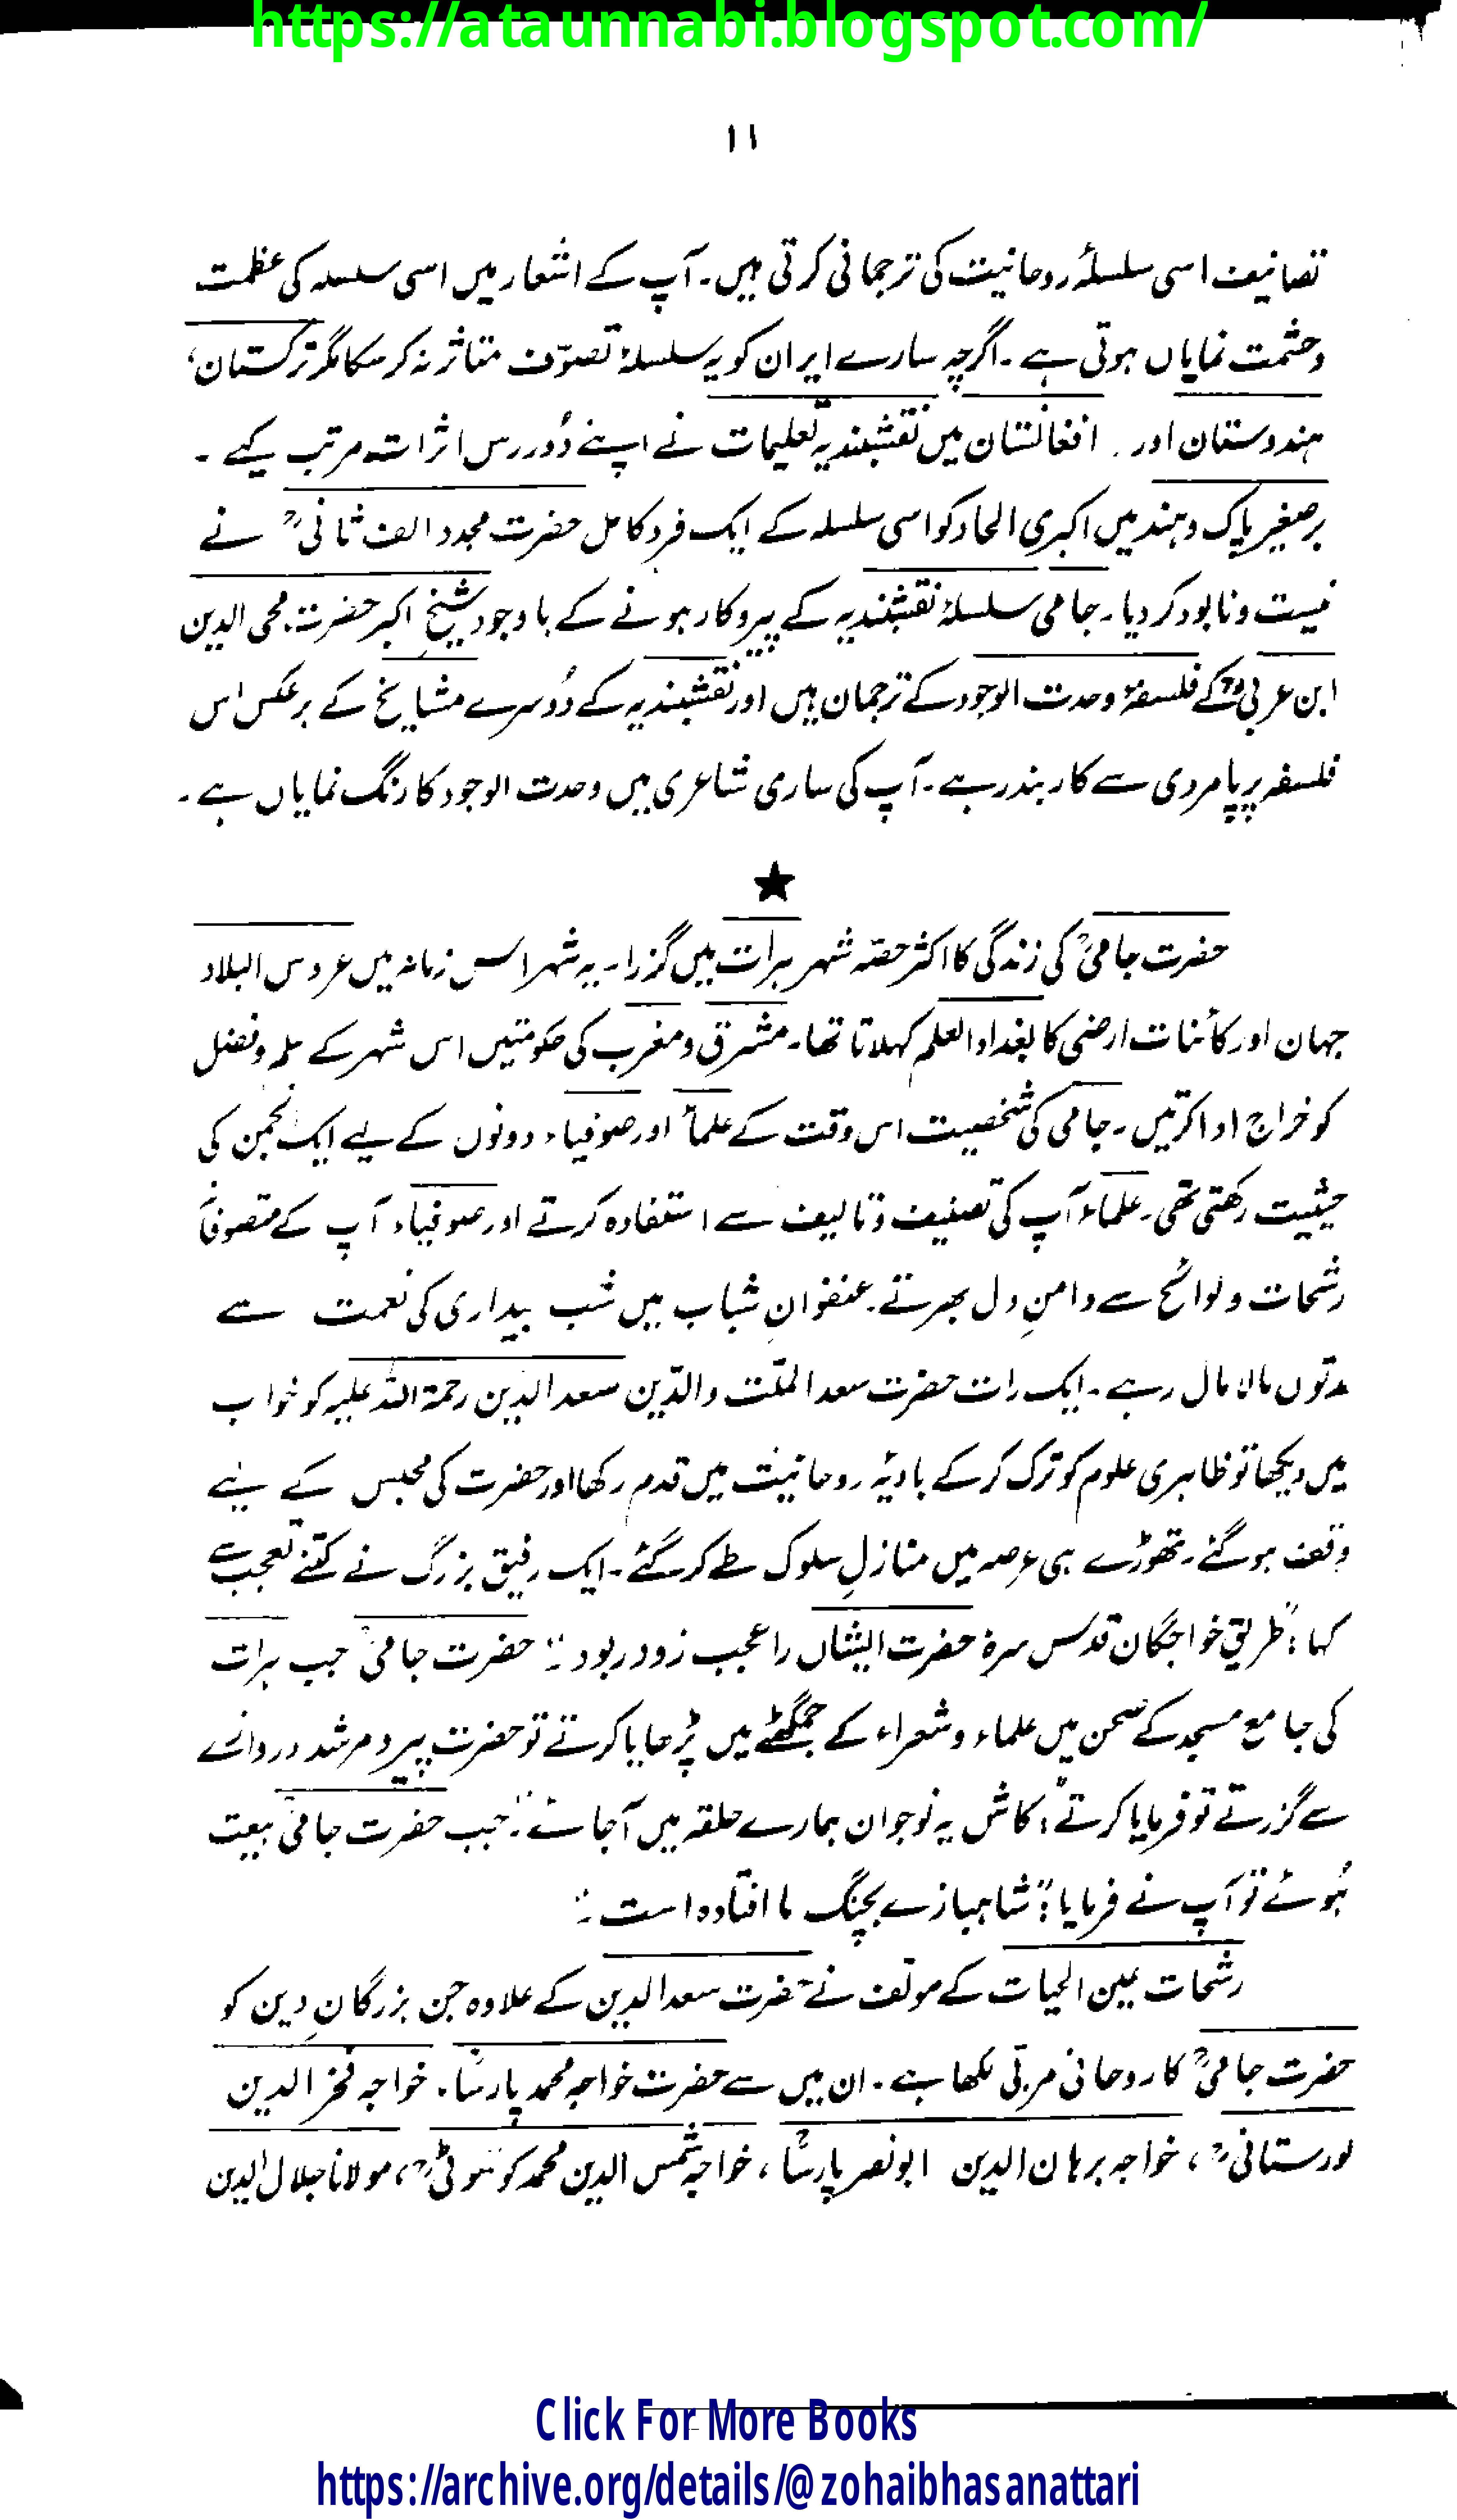 https://ataunnabi.blogspot.com/
۱۱
تصانیف اسی سلسلۂ روحانیت کی ترجمانی کرتی ہیں۔ آپ کے اشعار میں اسی سلسلہ کی عظمت
و حشمت نمایاں ہوتی ہے۔ اگرچہ سارے ایران کو یہ سلسلۂ تصوّف متاثر نہ کر سکا مگر ترکستان،
ہندوستان اور افغانستان میں نقشبندیہ تعلیمات نے اپنے دُور رس اثرات مرتب کیے۔
برصغیر پاک و ہند میں اکبری الحاد کو اسی سلسلہ کے ایک فردِ کامل حضرت مجدد الف ثانیؒ نے
نیست و نابود کر دیا۔ جامی سلسلۂ نقشبندیہ کے پیروکار ہونے کے باوجود شیخ اکبر حضرت محی الدین
ابن عربیؒ کے فلسفۂ وحدت الوجود کے ترجمان ہیں اور نقشبندیہ کے دُوسرے مشایخ کے برعکس اس
فلسفہ پر پامردی سے کاربند رہے۔ آپ کی ساری شاعری میں وحدت الوجود کا رنگ نمایاں ہے۔
★
حضرت جامیؒ کی زندگی کا اکثر حصّہ شہر ہرات میں گزرا۔ یہ شہر اس زمانہ میں عروس البلاد
جہان اور کائنات ارضی کا بغداد العلم کہلاتا تھا۔ مشرق و مغرب کی حکومتیں اس شہر کے علم و فضل
کو خراج ادا کرتیں۔ جامی کی شخصیت اس وقت کے علمأ اور صوفیاء دونوں کے لیے ایک انجمن کی
حیثیت رکھتی تھی۔ علماء آپ کی تصنیف و تالیف سے استفادہ کرتے اور صوفیاء آپ کے متصوفانہ
رشحات و لوائح سے دامنِ دل بھرتے۔ عنفوانِ شباب میں شب بیداری کی نعمت سے
مدتوں مالا مال رہے۔ ایک رات حضرت سعد الملّت والدّین سعد الدّین رحمۃ اللہ علیہ کو خواب
میں دیکھا تو ظاہری علوم کو ترک کر کے بادیۂ روحانیت میں قدم رکھا اور حضرت کی مجلس کے لیے
وقف ہو گئے۔ تھوڑے ہی عرصہ میں منازلِ سلوک طے کر گئے۔ ایک رفیق بزرگ نے کتنے تعجب سے
کہا: "طریق خواجگان قدس سرہٗ حضرت ایشاں را عجب زود ربود۔" حضرت جامیؒ جب ہرات
کی جامع مسجد کے صحن میں علماء و شعراء کے جمگھٹے میں پڑھایا کرتے تو حضرت پیر و مرشد دروازے
سے گزرتے تو فرمایا کرتے: "کاش یہ نوجوان ہمارے حلقہ میں آ جائے۔" جب حضرت جامیؒ بیعت
ہُوئے تو آپ نے فرمایا: "شاہبازے بچنگ ما افتادہ است۔"
رشحات عین الحیات کے مولف نے حضرت سعد الدین کے علاوہ جن بزرگانِ دین کو
حضرت جامیؒ کا روحانی مربّی لکھا ہے۔ ان میں سے حضرت خواجہ محمد پارسؒا۔ خواجہ فخر الدین
لورستانیؒ، خواجہ برہان الدین ابونصر پارسؒا، خواجہ شمس الدین محمد کوسوئیؒ، مولانا جلال الدین
Click For More Books
https://archive.org/details/@zohaibhasanattari